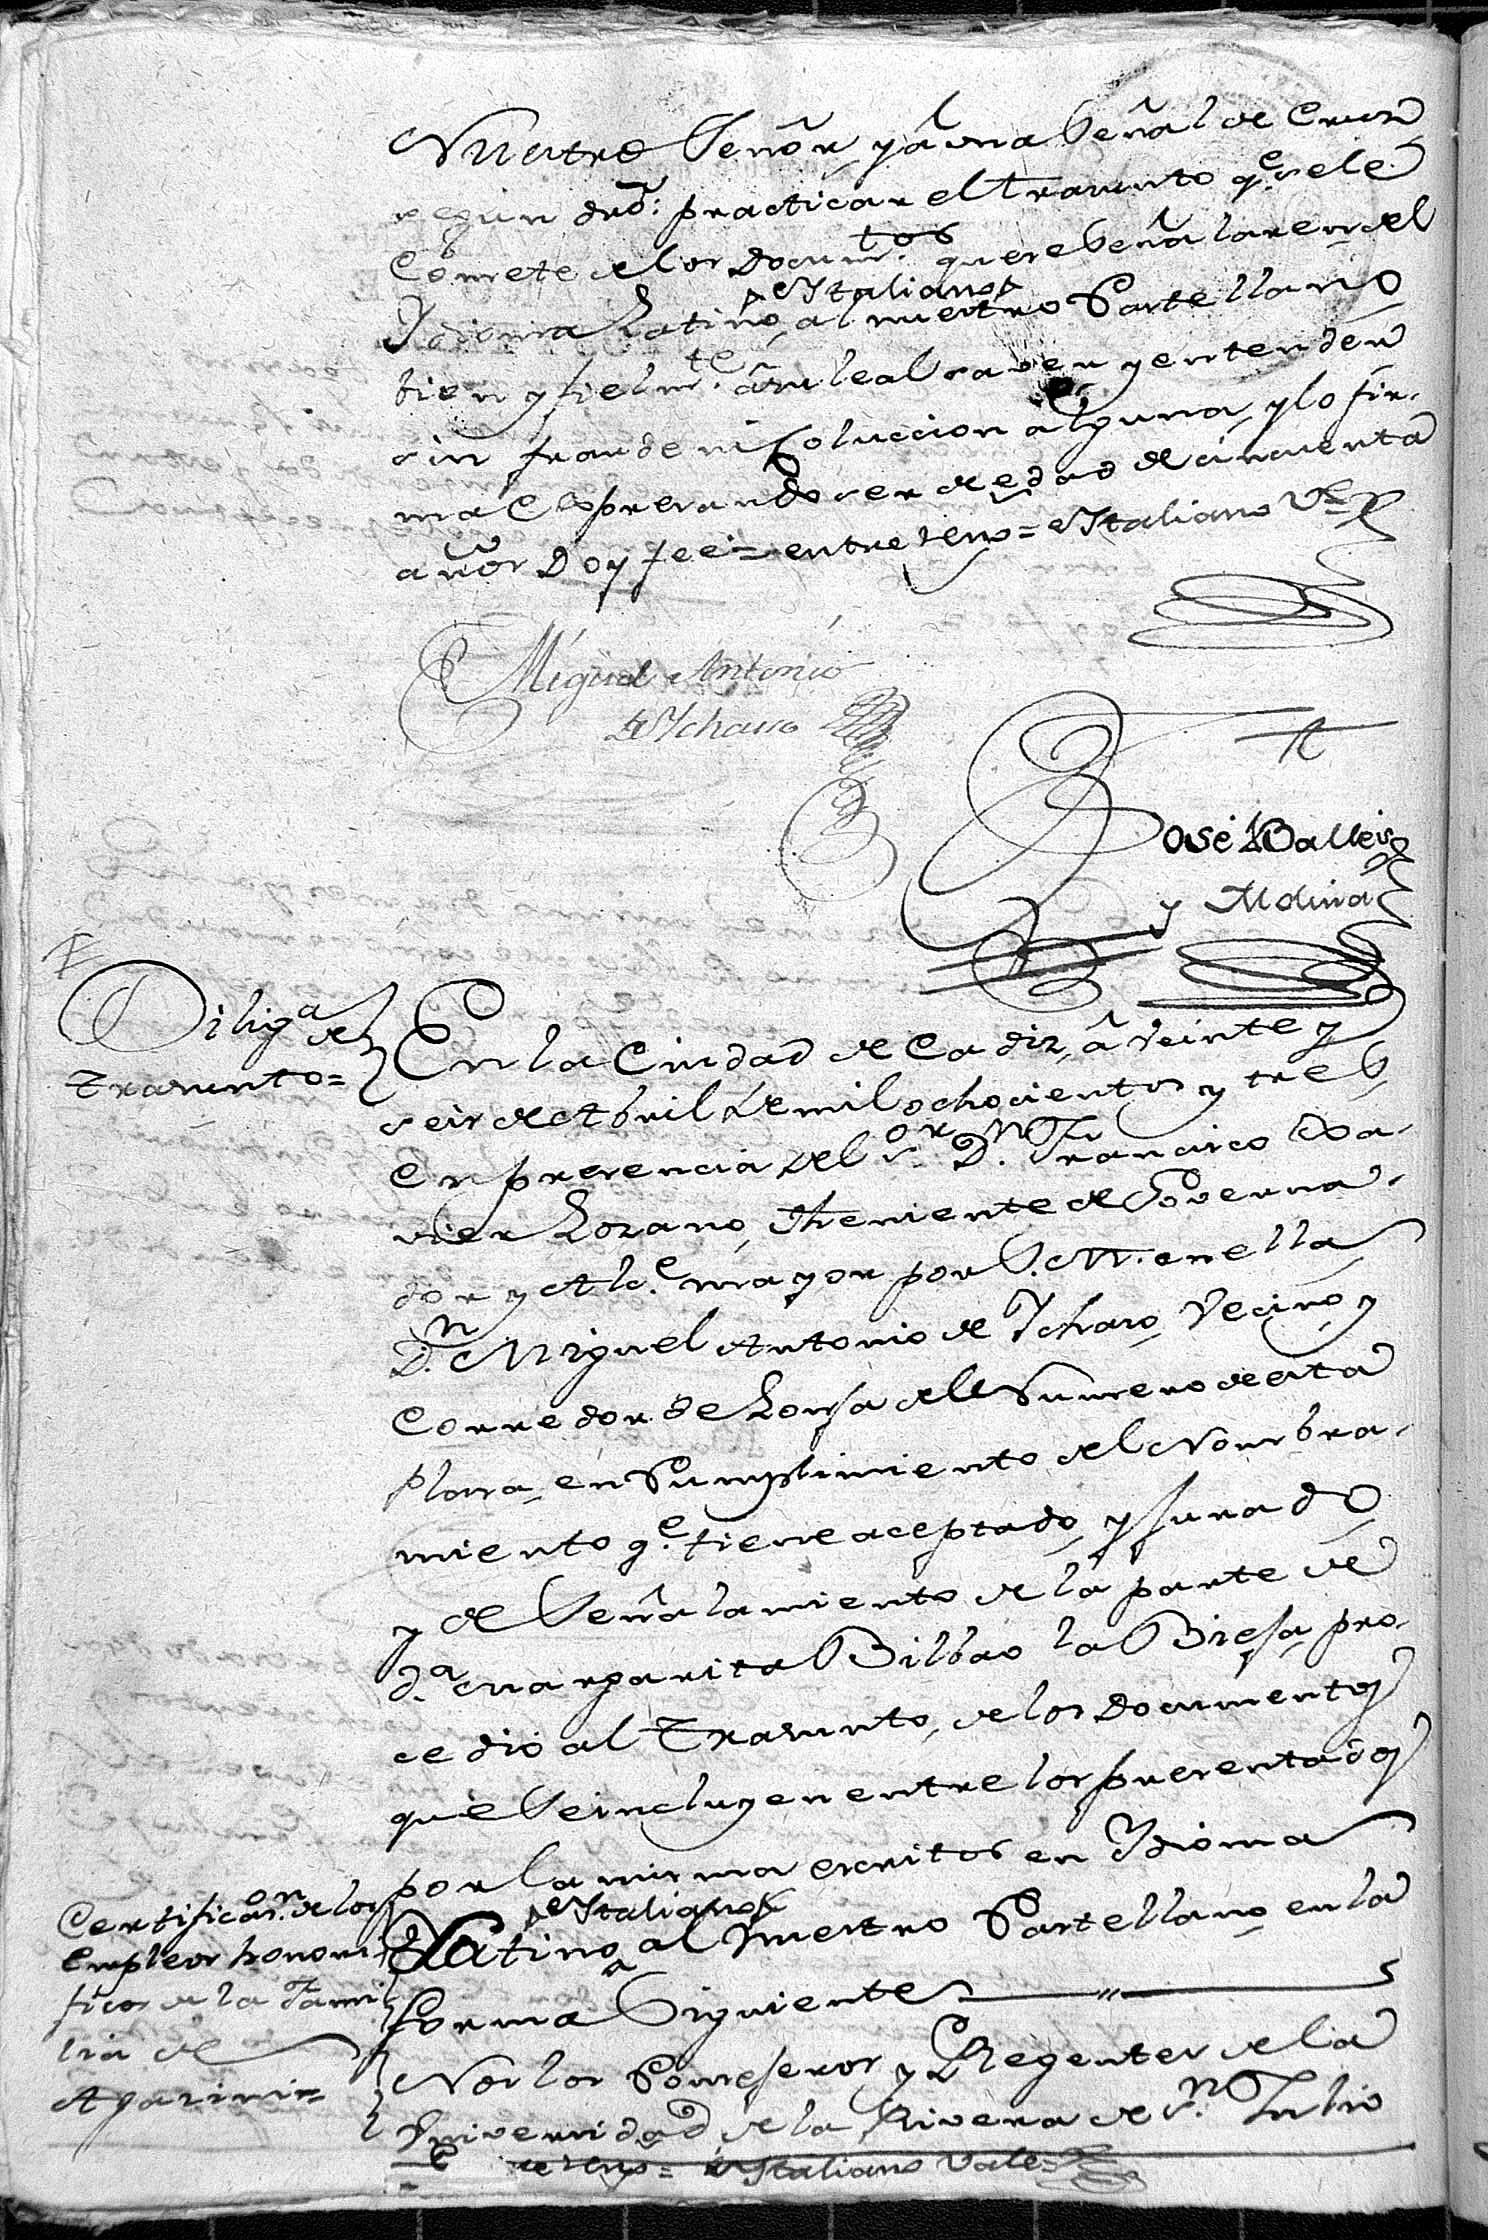 Nuestro Señor, y á una Señal de Cruz
segun dro: practicar el trasunto qe. se le
Comete de los Docum.tos que se Señalaren del
Ydioma Latino, é Ytaliano al nuestro Castellano
bien y fielmte. á su leal saver y entender
sin fraude ni Coluccion alguna, y lo fir-
ma Expresando ser de edad de cinquenta
años Doy fee = entre reng.s = é Ytaliano Ve.
Miguel Antonio
de Ycharo
José Balleis
y Molina
Diliga. de
trasunto =
En la Ciudad de Cadiz, á veinte y
seis de Abril de mil ochocientos y tres
en presencia del s.or D.n Francisco Xa-
vier Lozano, Theniente de Governa-
dor y Alc.e mayor por S. M. en ella
D.n Miguel Antonio de Ycharo, Vecino, y
Corredor de Lonja del Numero de esta
Plaza, en Cumplimiento del Nombra-
miento q.e tiene aceptado, y jurado
y de Señalamiento de la parte de
d.a Margarita Bilbao la Bieja, pro-
cedió al Trasunto, de los documentos
que se incluyen entre los presentados
por la misma escritos en Ydioma
Latino é Ytaliano al Nuestro Castellano en la
forma Siguiente
Certificaz.on de los
Empleos honori
ficos de la Fami
lia de
Nos los Consejeros, y Regentes de la
Universidad de la Rivera de s.n Julio
é Ytaliano Vale